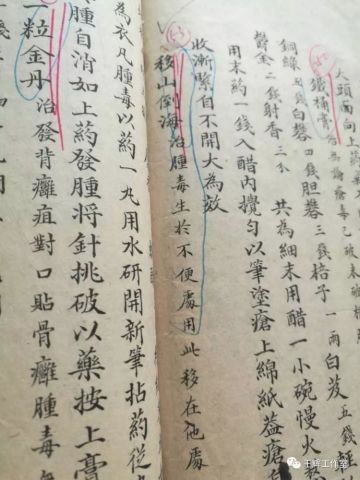 火頭面向上
鐵桶膏治無論瘡毒已破未破
銅綠五錢白礬四錢胆礬三錢梧子一兩白芨五錢輕
鬱金二錢射香三分共為細末用醋一小碗慢火熬
用末約一錢入醋內攪勻以筆塗瘡上綿紙蓋瘡
收漸緊自不開大為效
移山倒海治腫毒生於不便處用此移在他處
為衣凡腫毒以药一丸用水研開新筆拈药從
腫自消如上药發腫將針挑破以藥按上膏
一粒金丹治發背癰疽對口貼骨癰腫毒
王晖工作室